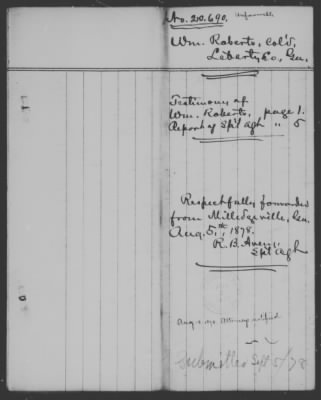 No. 20.690.
Wm. Roberts, Col'd,
Liberty Co, Ga.
Testimony of
Wm. Roberts, page 1.
Report of Sp'l Agt " 5
Respectfully forwarded
from Milledgeville, Ga.
Aug. 5th, 1878.
R. B. Avery,
Spl Agt
Attorney notified
Submitted Sept 5/78